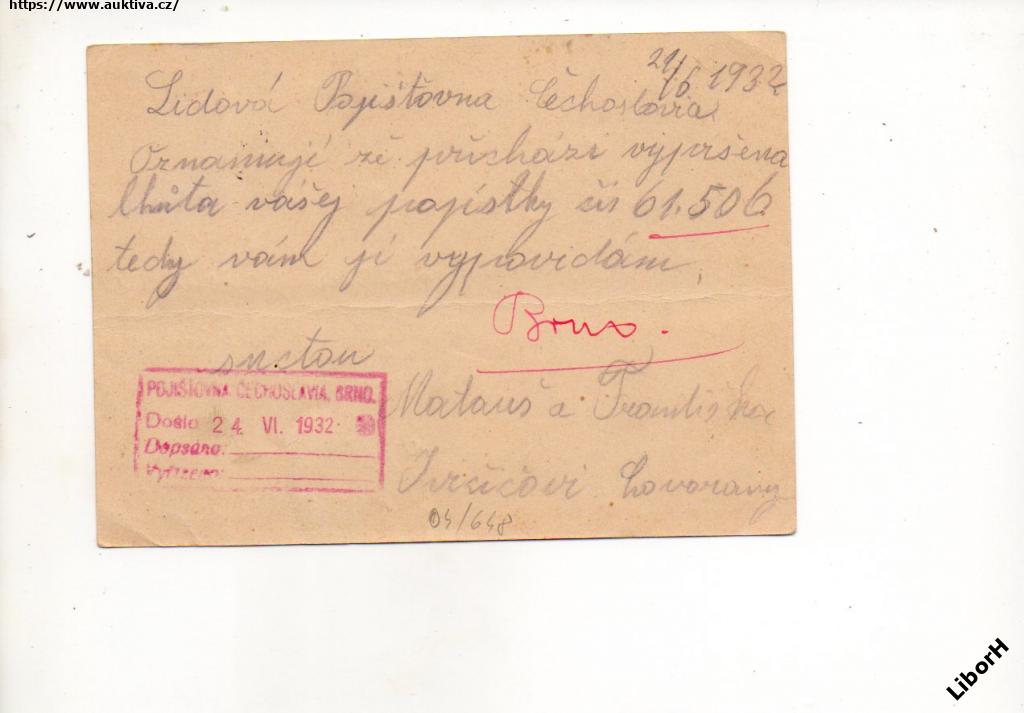 https://www.auktiva.cz/
21/6 1932
Lidová Pojišťovna Čechoslavia
Oznamuji že přichází vypršena
lhůta vášej pojistky čís 61.506
tedy vám ji vypovidám,
Brno.
suctou
POJIŠŤOVNA ČECHOSLAVIA, BRNO.
Došlo 24 VI. 1932
Dopsáno:
Vyřízeno:
Matouš a Františka
Lovorany
04/648
LiborH